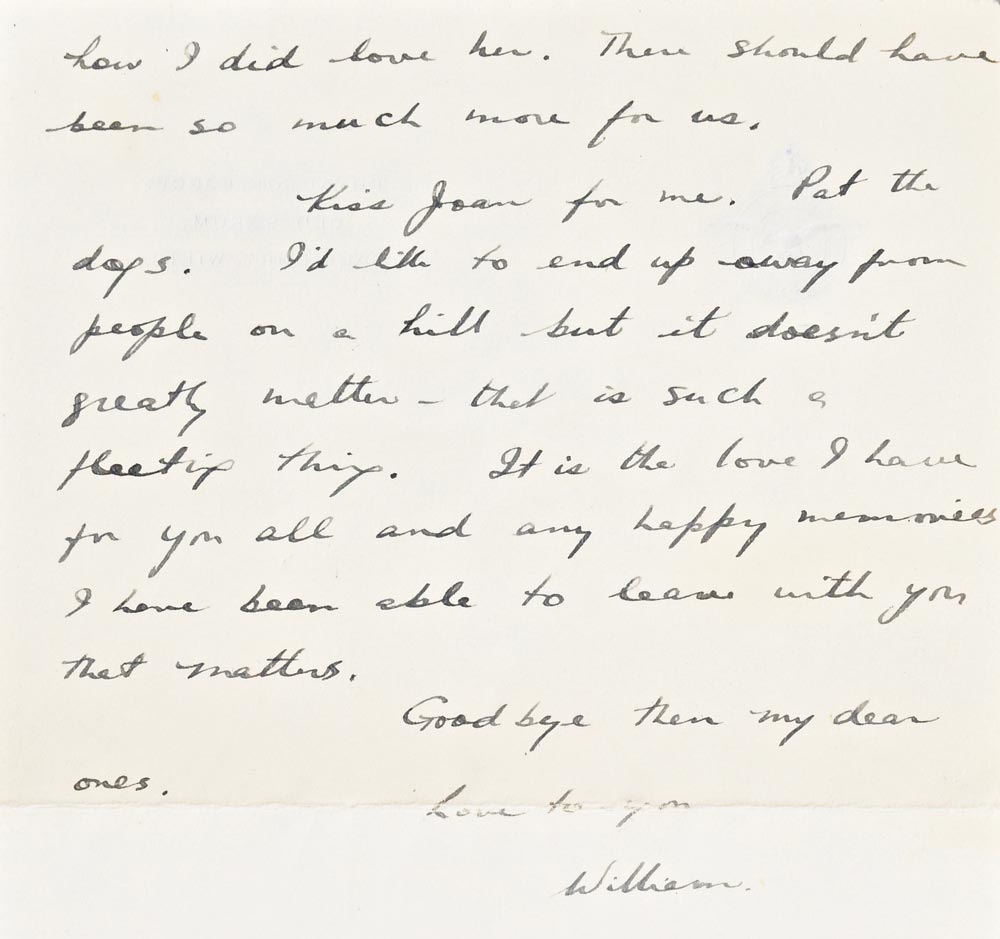 how I did love her. There should have
been so much more for us.
Kiss Joan for me. Pat the
dogs. I'd like to end up away from
people on a hill but it doesn't
greatly matter - that is such a
fleeting thing. It is the love I have
for you all and any happy memories
I have been able to leave with you
that matters.
Goodbye then my dear
ones.
Love to you
William.